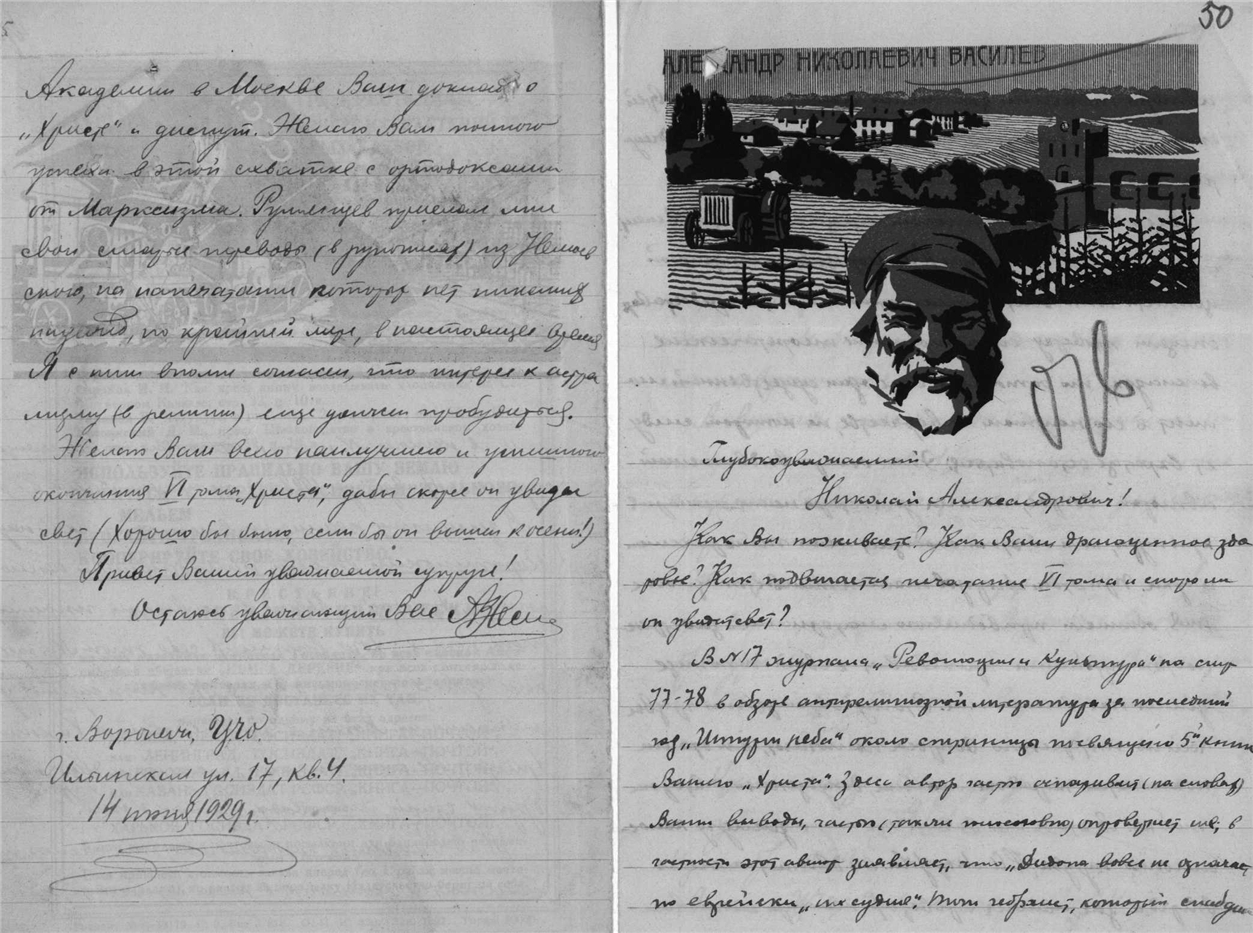 Академии в Москве Ваш доклад о
„Христе“ и диспут. Желаю Вам полного
успеха в этой схватке с ортодоксами
от Марксизма. Румянцев прислал мне
свои статьи переводы (в рукописях) из Немоев
ского, на напечатание которых нет никаких
надежд, по крайней мере, в настоящее время
Я с ним вполне согласен, что интерес к астра
лизму (в религии) еще должен пробудиться.
Желаю Вам всего наилучшего и успешного
окончания VI тома „Христа“, дабы скорее он увидел
свет (Хорошо бы было, если бы он вышел к осени!)
Привет Вашей уважаемой супруге!
Остаюсь уважающий Вас
г. Воронеж, УЧО.
Ильинская ул. 17, кв. 4.
14 июня 1929 г.
50
АЛЕКСАНДР НИКОЛАЕВИЧ ВАСИЛЕВ
Глубокоуважаемый
Николай Александрович!
Как Вы поживаете? Как Ваше драгоценное здо
ровье? Как подвигается печатание VI тома и скоро ли
он увидит свет?
В №17 журнала „Революция и культура“ на стр
77-78 в обзоре антирелигиозной литературы за последний
год „Штурм неба“ около страницы посвящено 5й книге
Вашего „Христа“. Здесь автор часто оспаривает (на словах)
Ваши выводы, часто (также) опровергает их; в
частности этот автор заявляет, что „Дидона вовсе не означает
по еврейски „их судия“. Тот гебраист, который снабдил